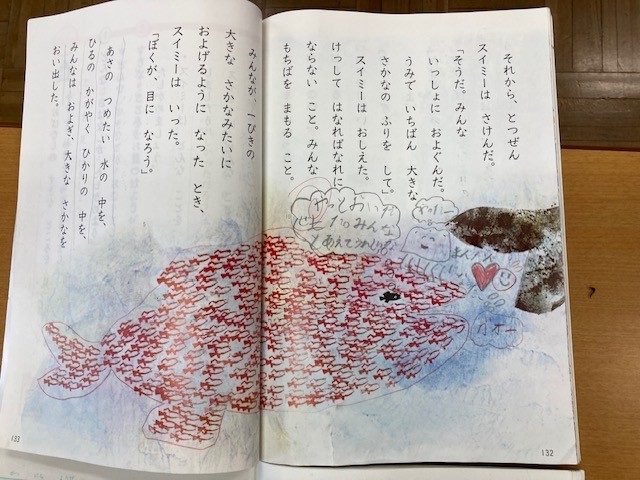 それから、とつぜん
スイミーは さけんだ。
「そうだ。みんな
いっしょに およぐんだ。
うみで いちばん 大きな
さかなの ふりを して。」
スイミーは おしえた。
けっして はなればなれに
ならない こと。みんな
もちばを まもる こと。
132
みんなが、一ぴきの
大きな さかなみたいに
およげるように なった とき、
スイミーは いった。
「ぼくが、目に なろう。」
あさの つめたい 水の 中を、
ひるの かがやく ひかりの 中を、
みんなは およぎ、大きな さかなを
おい出した。
133
やっと
みんな